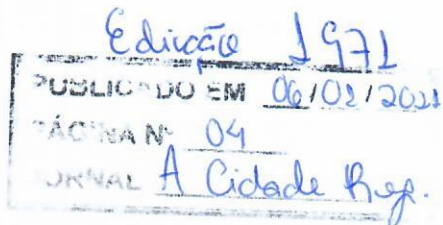 Edicção 1971
PUBLICADO EM 06/02/2021
PÁGINA Nº 04
JORNAL A Cidade Reg.